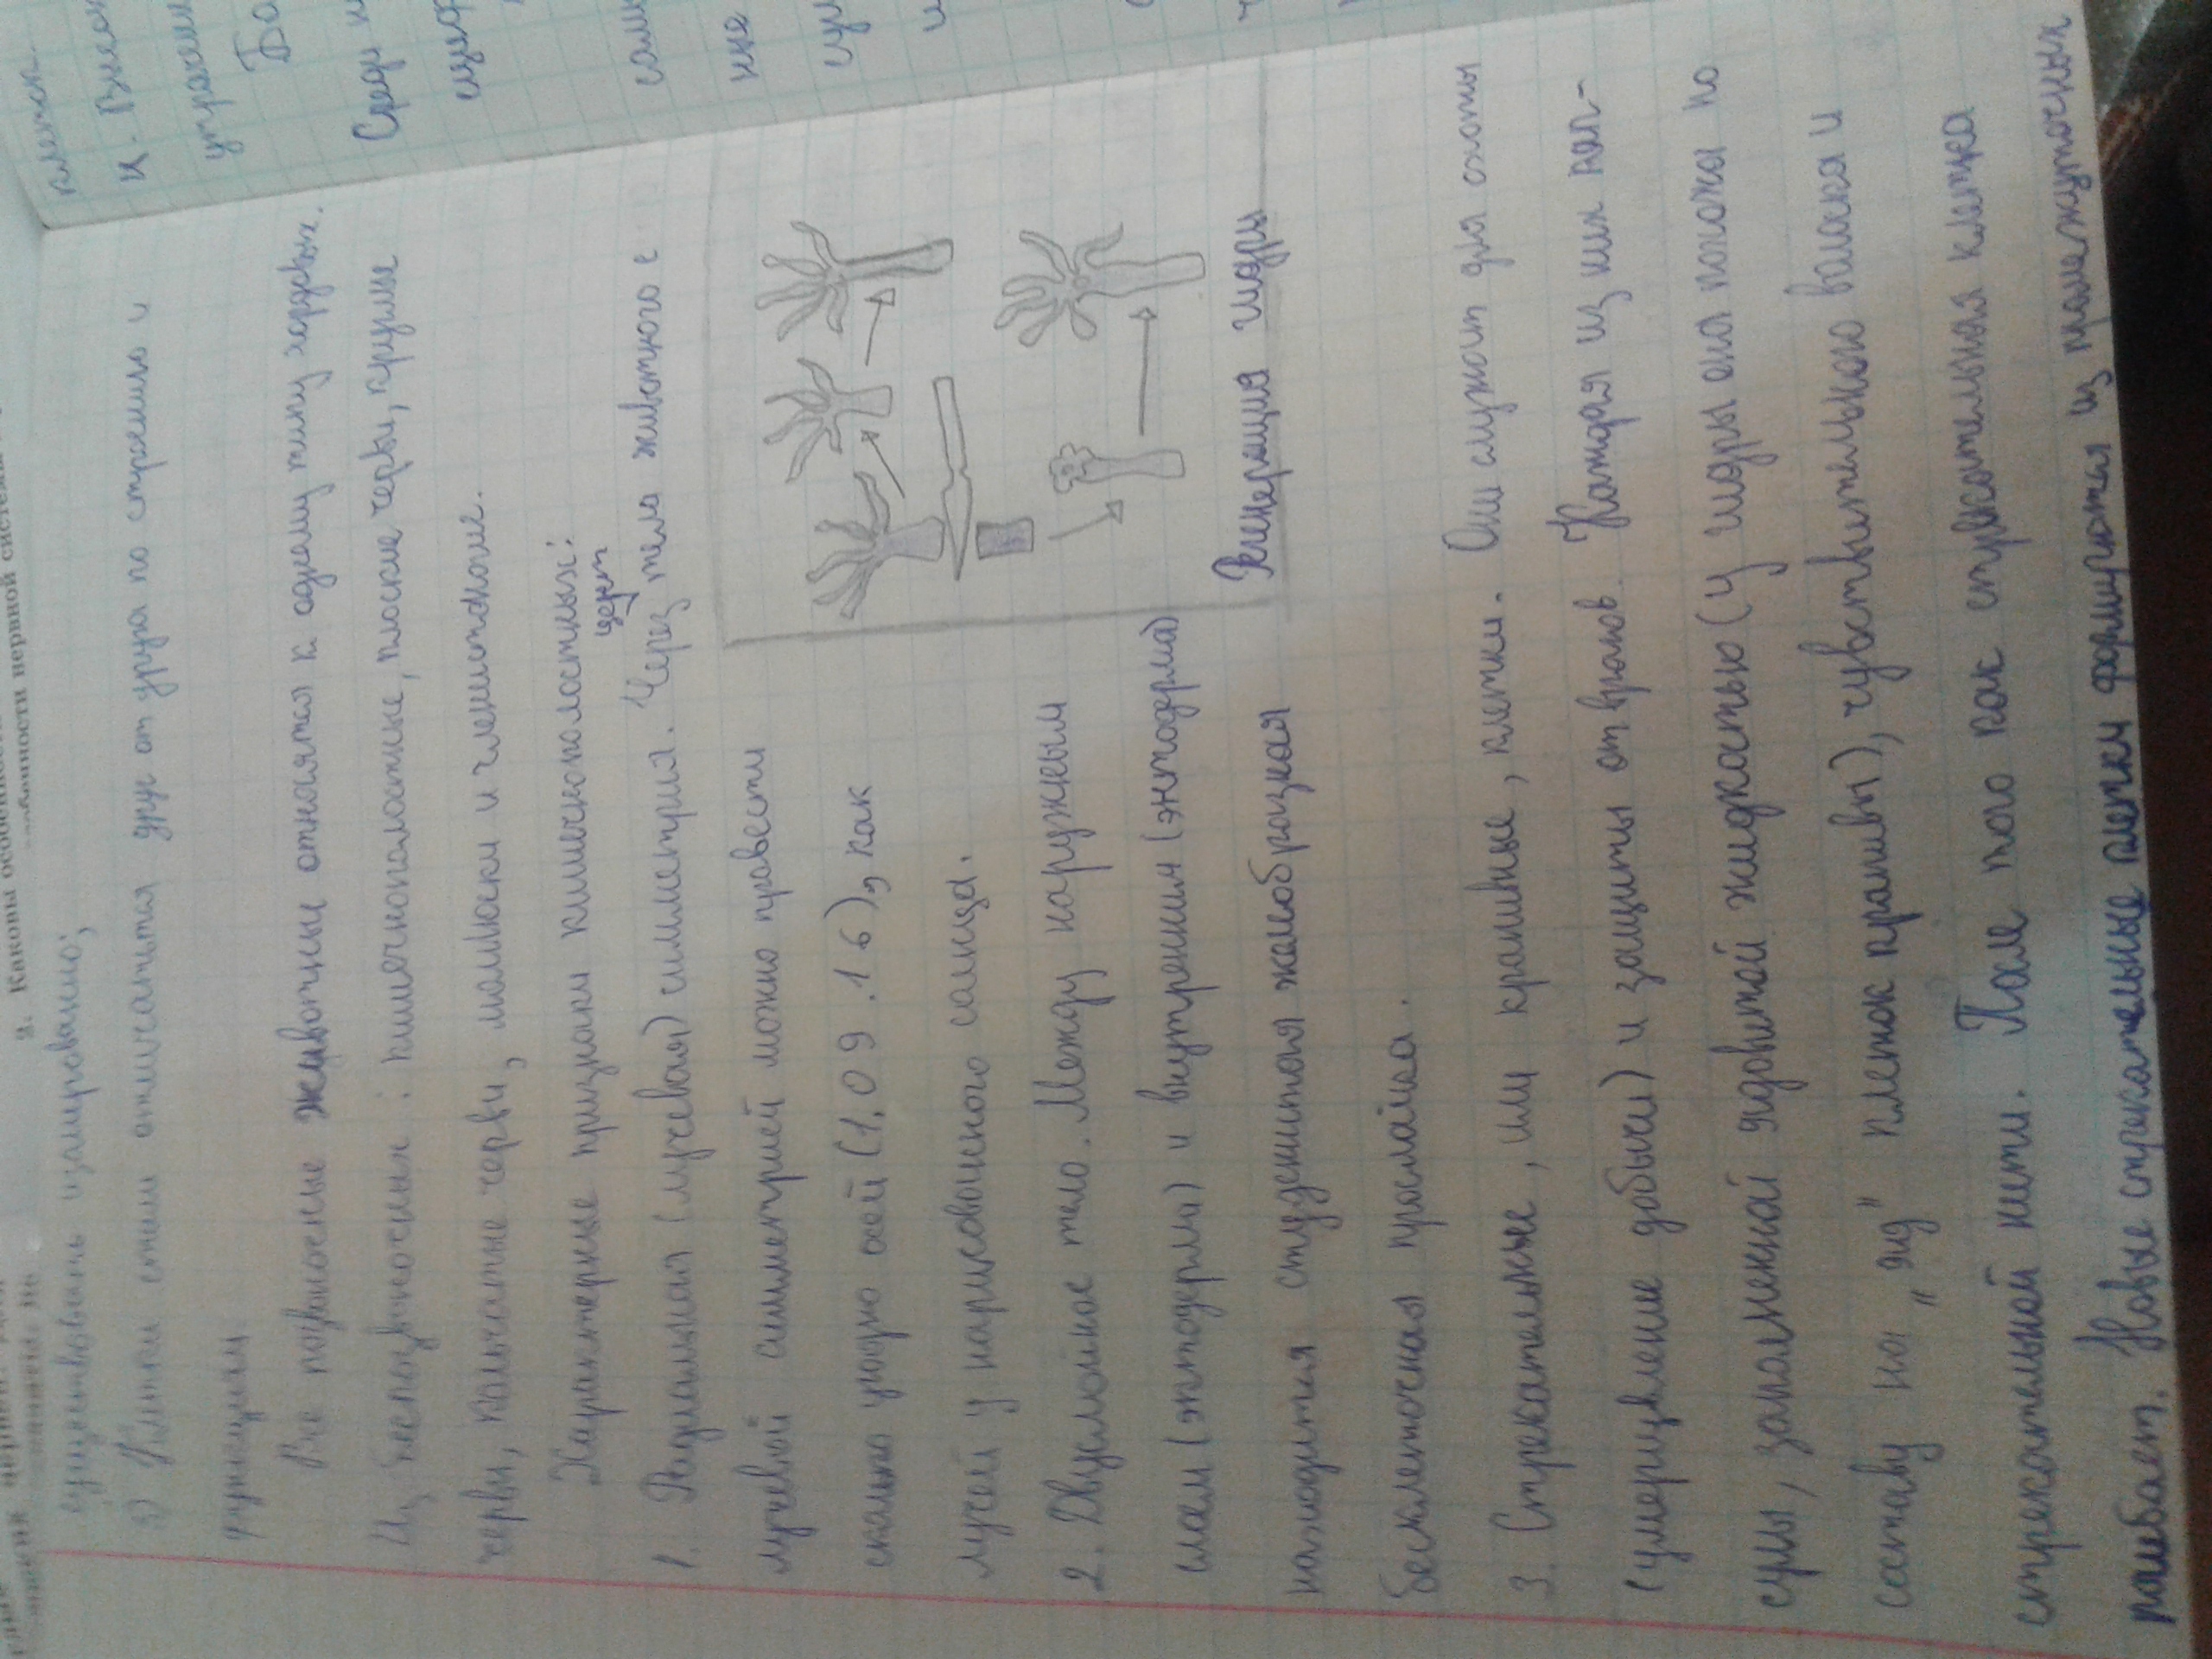 2. Каковы особенност
нервной систем
существовать изолированно;
2) Клетки стали отличатся друг от друга по строению и
функциям.
Все позвоночные животны относятся к одному типу хордовых.
Из беспозвоночных: кишечнополостные, плоские черви, круглые
черви, кольчатые черви, моллюски и членистоногие.
Характерные признаки кишечнополостных:
центр
1. Радиальная (лучевая) симметрия. Через тело животного с
лучевой симметрией можно провести
сколько угодно осей (1.09.16), как
лучей у нарисованного солнца.
2. Двуслойное тело. Между наружным
слоем (эктодерма) и внутренним (энтодерма)
находится студенистая желеобразная
бесклеточная прослойка.
Регенерация гидры
3. Стрекательные, или крапивные, клетки. Они служат для охоты
(умерщвление добычи) и защиты от врагов. Каждая из них кап-
сулы, заполненной ядовитой жидкостью (у гидры она похожа по
составу на "яд" клеток крапивы), чувствительного волоска и
стрекательной нити. После того как стрекательная клетка
погибает. Новые стрекательные клетки формируются из промежуточных
клеток.
и. Внеш
Ба
Среди к